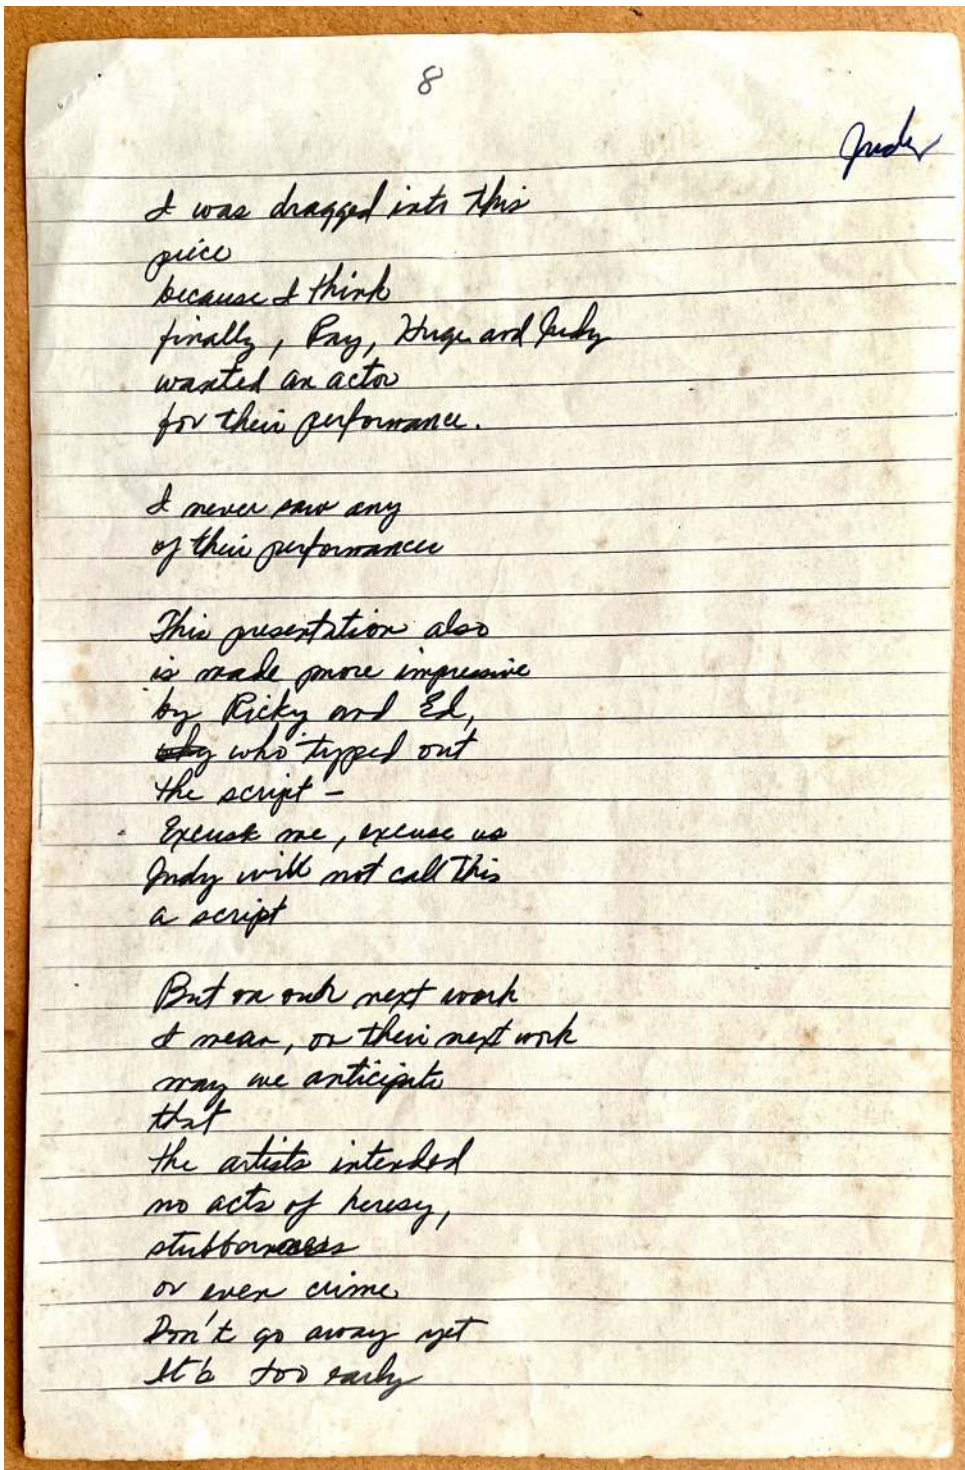 8
Judy
I was dragged into this
piece
because I think
finally, Ray, Huge and Judy
wanted an actor
for their performance.
I never saw any
of their performances
This presentation also
is made more impressive
by Ricky and Ed,
why who typped out
the script –
Excuse me, excuse us
Judy will not call this
a script
But on our next work
I mean, on their next work
may we anticipate
that
the artists intended
no acts of heresy,
stubbornness
or even crime
Don't go away yet
It's too early